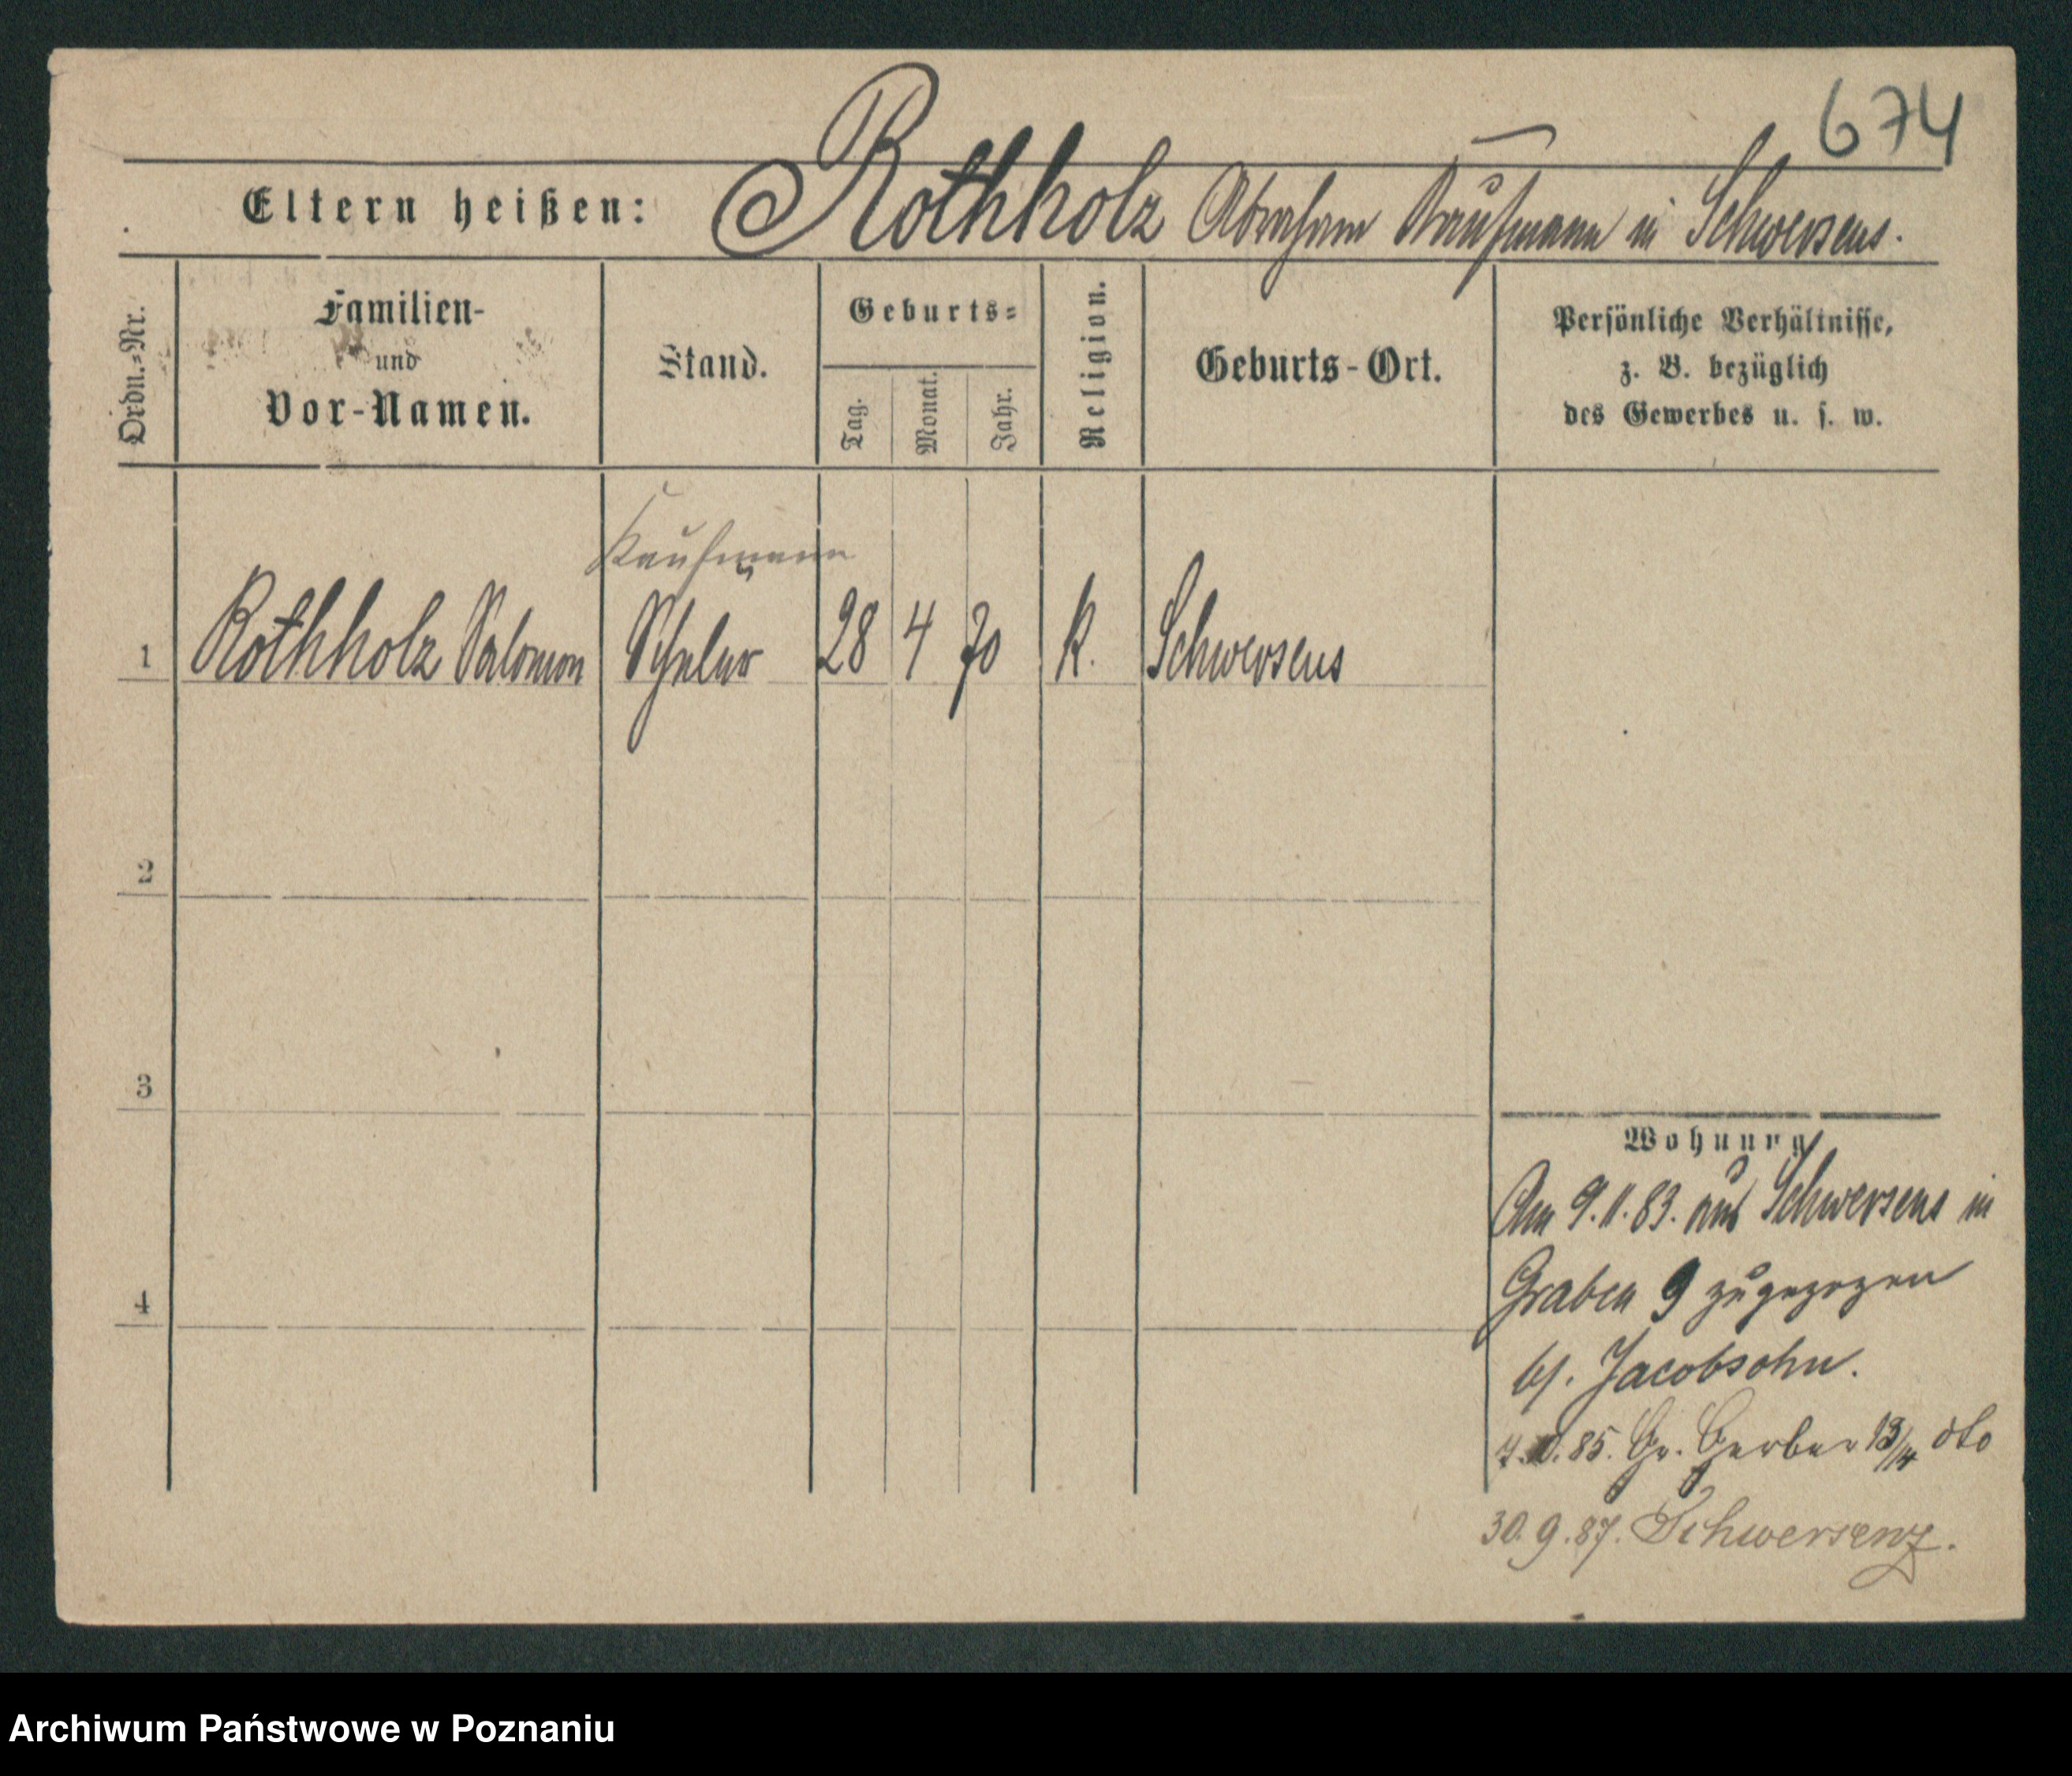 674
Eltern heißen: Rothholz Abraham Kaufmann in Schwersens.
Ordn.-Nr.
Familien-
und
Vor-Namen.
Stand.
Geburts-
Tag.
Monat.
Jahr.
Religion.
Geburts-Ort.
Persönliche Verhältnisse,
z. B. bezüglich
des Gewerbes u. s. w.
Kaufmann
1 Rothholz Salomon Schüler 28 4 70 Schwersens
2
3
4
Wohnung
Am 9.11.83. aus Schwersens in
Graben 9 zugezogen
bj. Jacobsohn.
85. Gr. Gerber 13/14 dto
30.9.87. Schwersenz.
Archiwum Państwowe w Poznaniu